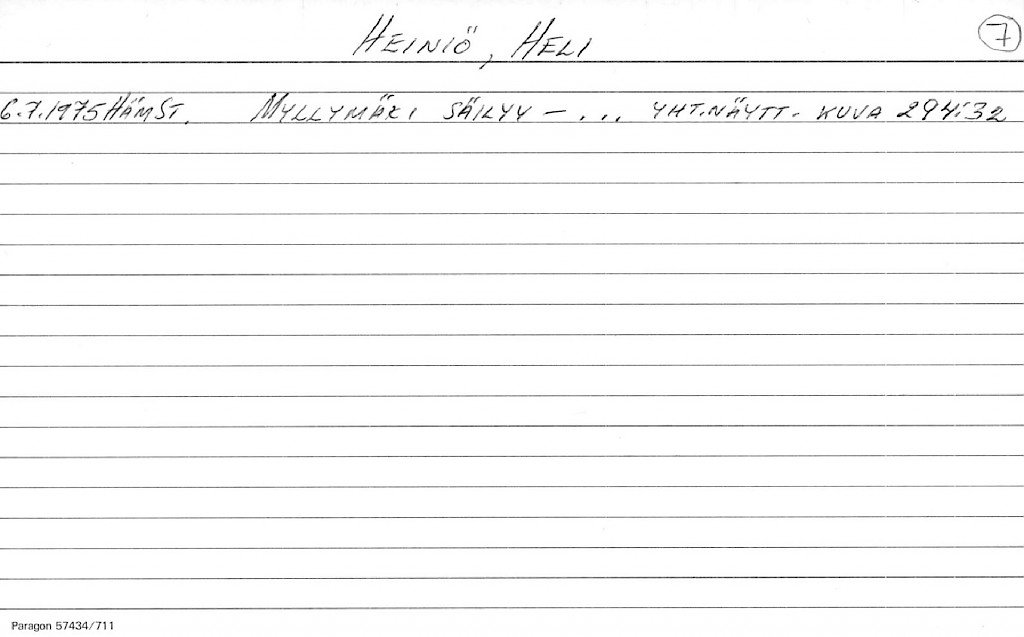 HEINIÖ, HELI 7
6.7.1975 HÄMST. MYLLYMÄKI SÄILYY - ... YHT.NÄYTT. KUVA 294:32
Paragon 57434/711